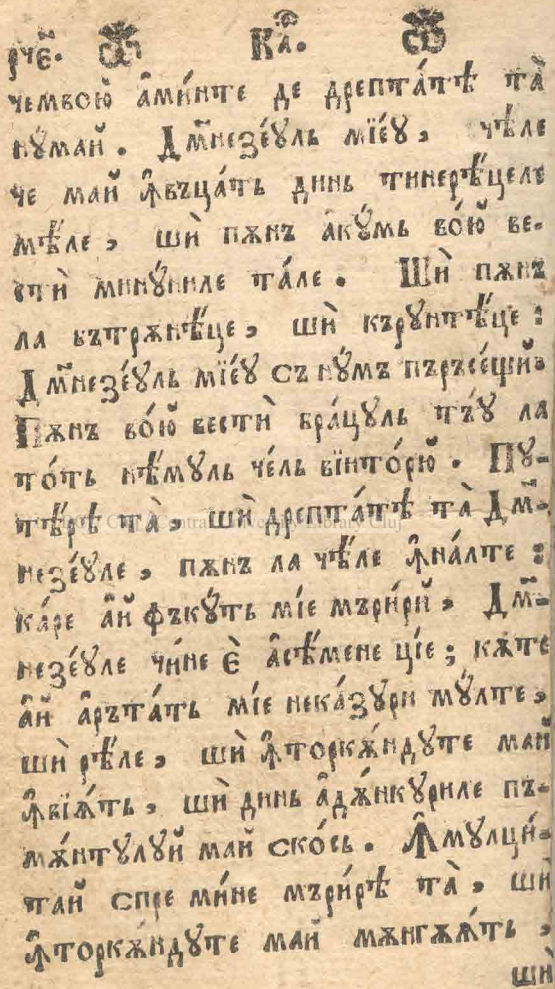 рч҃е. Ка҃.
чемвою̀ а҆ми́нте де дрепта́тѣ та̀
нꙋ́май. Дм҃незе́ꙋль мїе́ꙋ, чѣ́ле
че май ꙟ҆въца́ть динь тинерѣ́целе
мѣ́ле, шѝ пѫнъ акꙋ́мь во́ю ве-
стѝ минꙋ́ниле та́ле. Шѝ пѫнъ
ла бътрѫнѣ́це, шѝ кърꙋнтѣ́це:
Дм҃незе́ꙋль мїе́ꙋ съ нꙋ́мъ пъръсе́щй.
Пѫнъ во́ю вестѝ бра́цꙋль тъ́ꙋ ла
то́ть нѣ́мꙋль че́ль вїито́рю. Пꙋ-
тѣ́рѣ та̀, шѝ дрепта́тѣ та̀ Дм҃-
незе́ꙋле, пѫнъ ла чѣ́ле ꙟна́лте:
ка́ре а҆й фъкꙋ́ть мі́е мъри́рй, Дм҃-
незе́ꙋле чи́не є҆̀ а҆сѣ́мене ці́е; кѫ́те
а҆й а҆ръта́ть мі́е нека́зꙋри мꙋ́лте,
шѝ рѣ́ле, шѝ ꙟ҆торкѫ́ндꙋте май
ꙟ҆вїѧ́ть, шѝ динь а҆дѫ́нкꙋриле пъ-
мѫ́нтꙋлꙋй май ско́сь. Ꙟ҆мꙋлци́-
тай спре ми́не мъри́рѣ та̀, шѝ
ꙟ҆торкѫ́ндꙋте май мѫнгѫѧ́ть,
шѝ
Central University Library Cluj